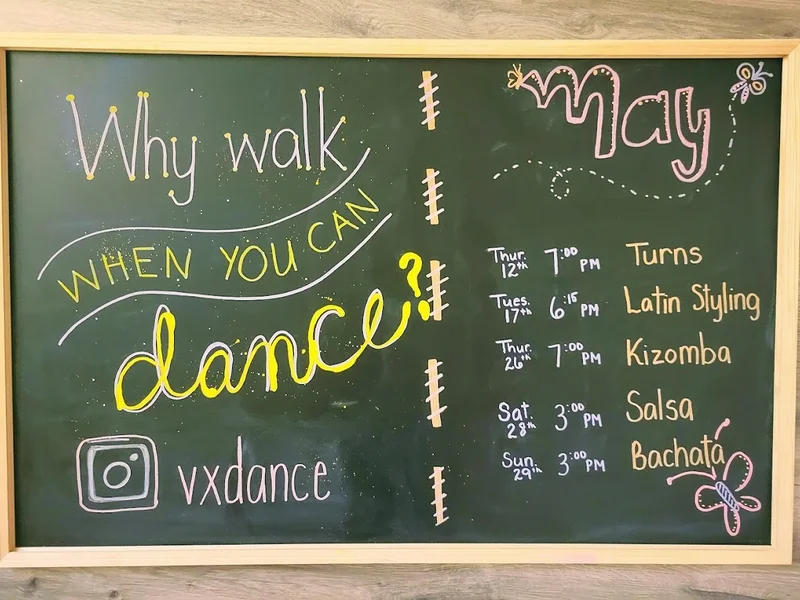 Why walk
WHEN YOU CAN
dance?
vxdance
May
Thur. 12th 7:00 PM Turns
Tues. 17th 6:15 PM Latin Styling
Thur. 26th 7:00 PM Kizomba
Sat. 28th 3:00 PM Salsa
Sun. 29th 3:00 PM Bachata